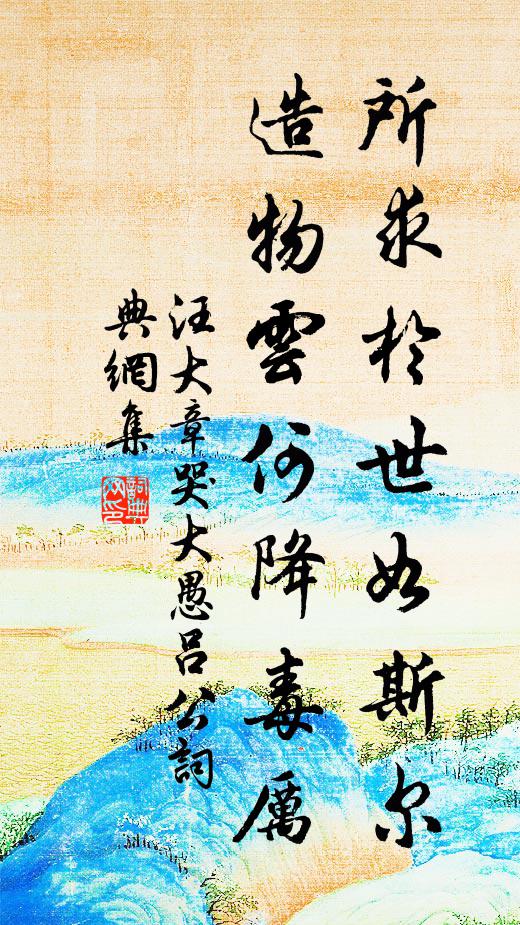 所求於世如斯尔
造物雲何降毒厲
汪大章哭大愚吕公詞
典網集
詞典